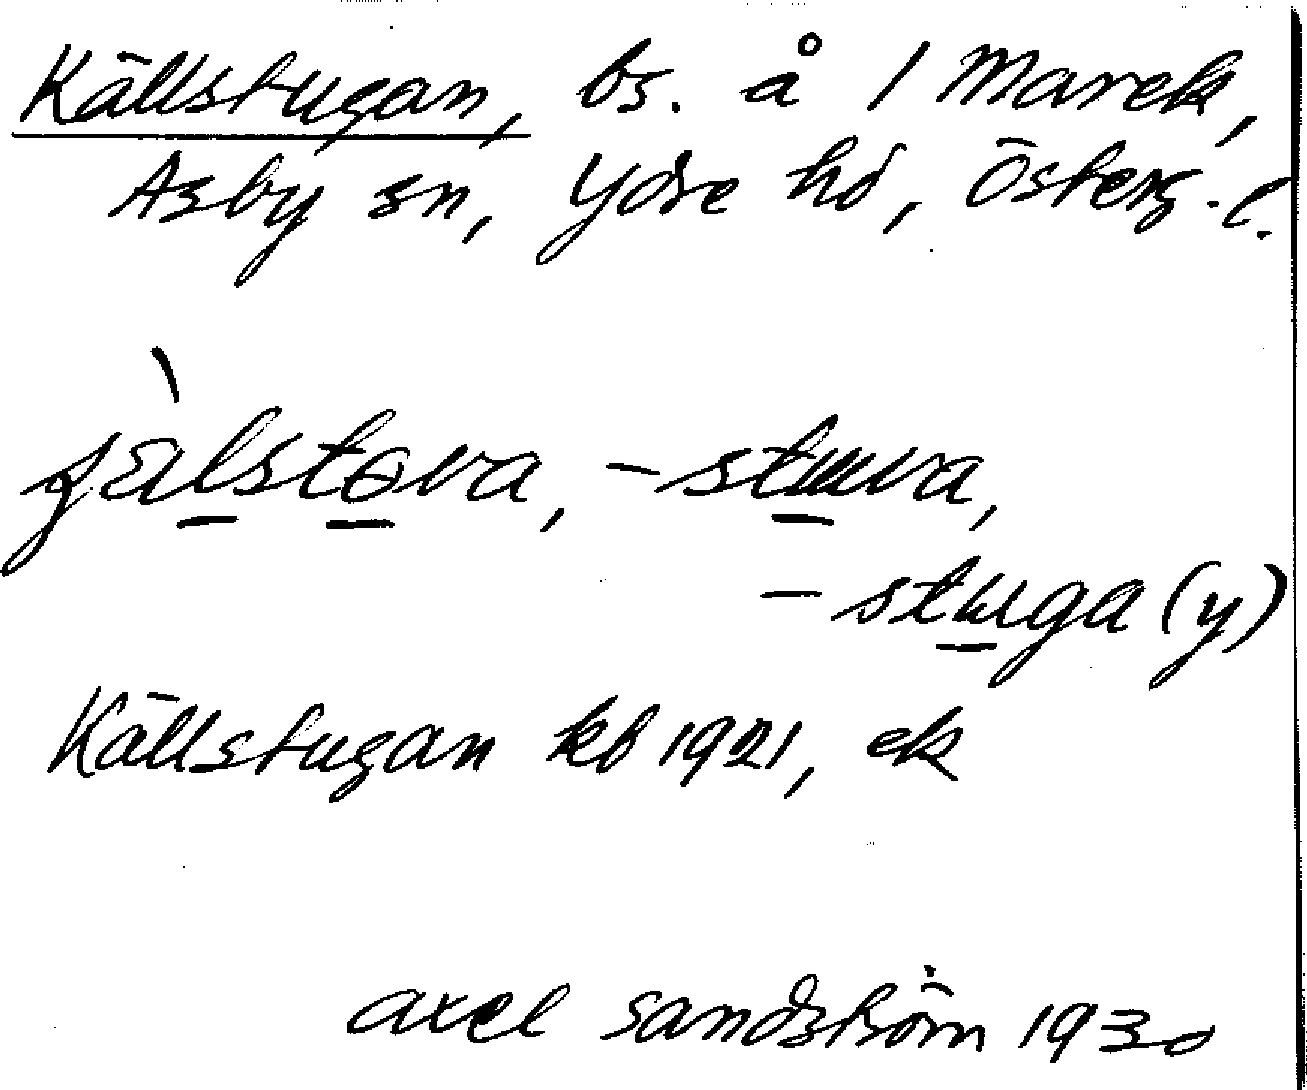 Källstugan, bs. å 1 Marek,
Asby sn, Ydre hd, Österg. l.
jälstɵva, -stuva,
-stuga (y)
Källstugan kb 1921, ek
Axel Sandström 1930